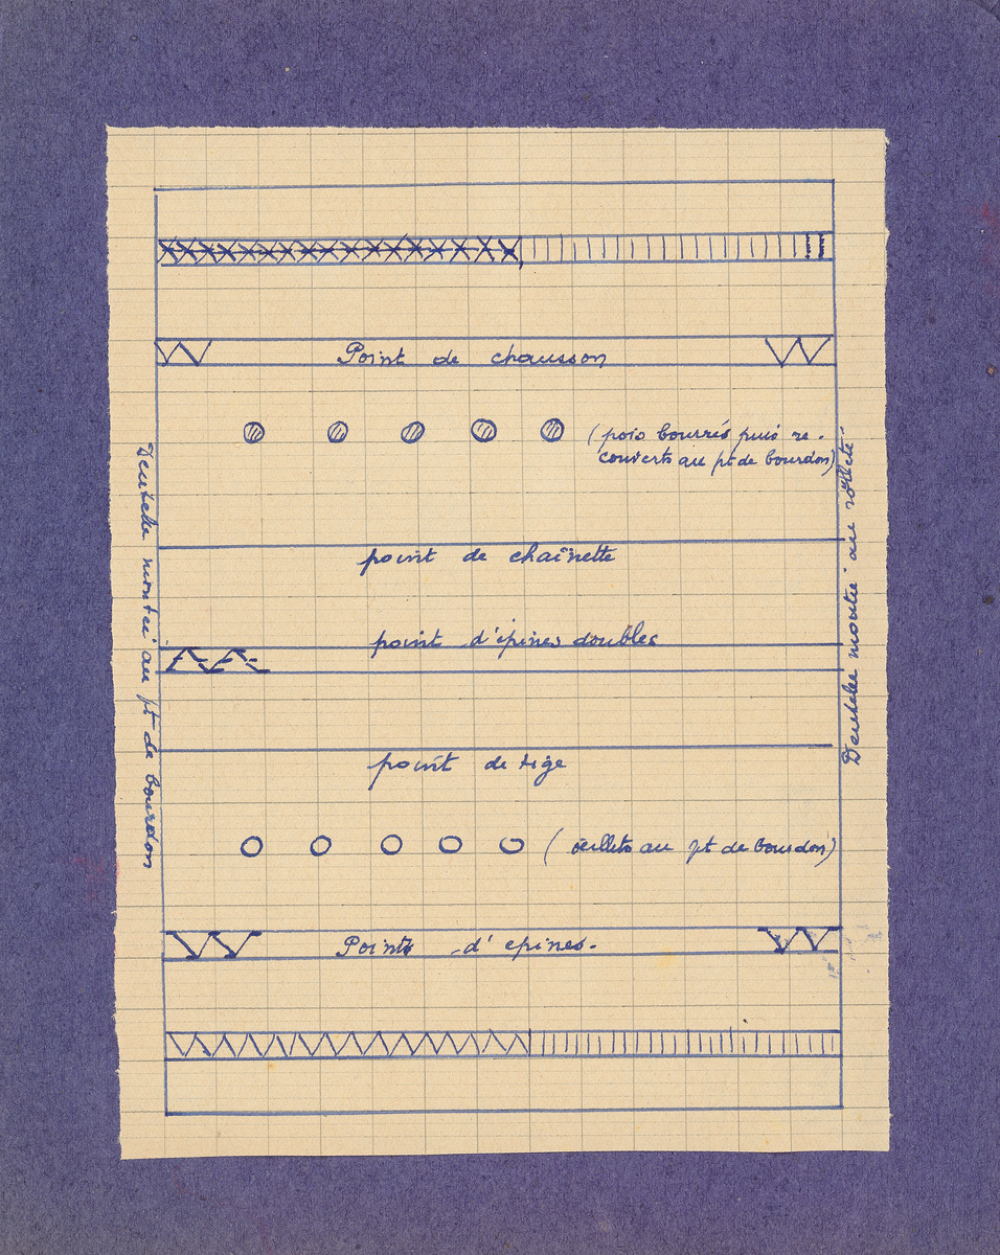 Point de chausson
(pois bourrés puis re-
couverts au pt de bourdon)
point de chaînette
point d'épines doubles
point de tige
(œillets au pt de bourdon)
Points d'epines.
Dentelle montée au pt de bourdon
Dentelle montée au